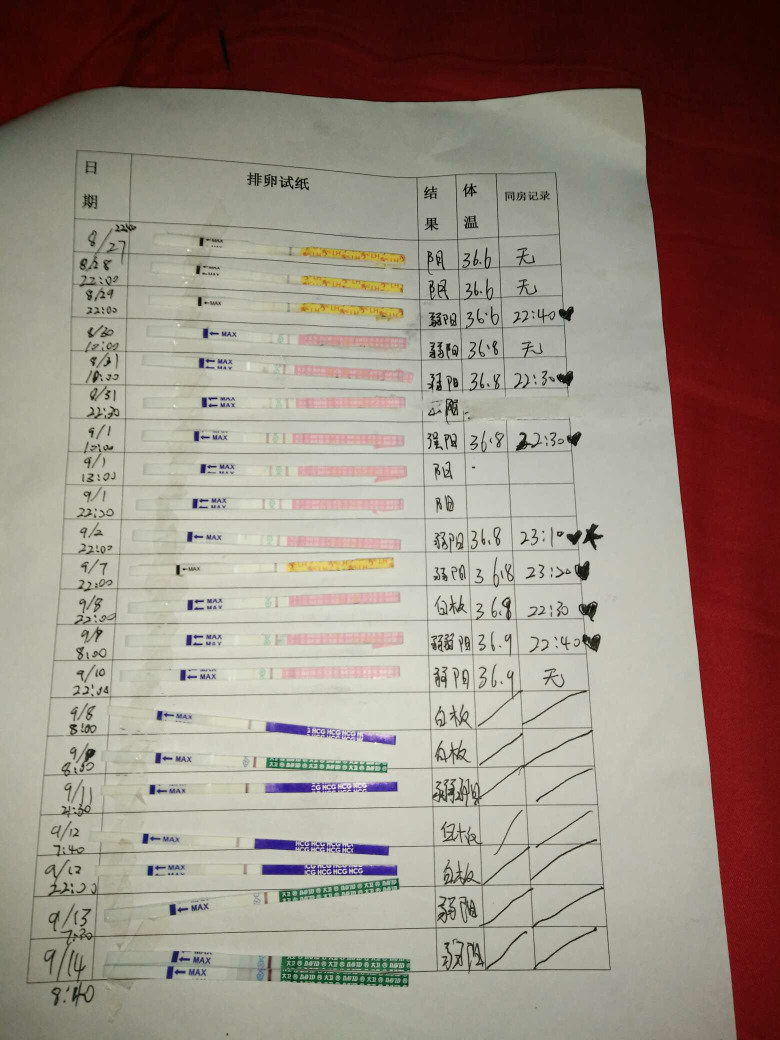 日期 排卵试纸 结果 体温 同房记录
8/27 22:00 MAX 阴 36.6 无
8/28 22:00 MAX 阴 36.6 无
8/29 22:00 MAX 弱阳 36.6 22:40
8/30 10:00 MAX 弱阳 36.8 无
8/31 MAX 弱阳 36.8 22:30
8/31 22:30 MAX
9/1 10:00 MAX 强阳 36.8 22:30
9/1 13:00 MAX 阳
9/1 22:30 MAX 阳
9/2 22:00 MAX 弱阳 36.8 23:10
9/7 22:00 MAX 弱阳 36.8 23:20
9/8 22:00 MAX 白板 36.8 22:30
9/9 8:00 MAX 弱弱阳 36.9 22:40
9/10 22:00 MAX 弱阳 36.9 无
9/8 8:00 MAX HCG HCG HCG 白板
9/9 8:00 MAX 白板
9/11 MAX HCG HCG HCG 弱弱阳
9/12 7:40 MAX HCG HCG HCG HCG 白板
9/12 22:00 MAX HCG HCG HCG HCG 白板
9/13 7:30 MAX 大卫 DAVID 弱阳
9/14 8:40 MAX 大卫 DAVID 弱阳
MAX 大卫 DAVID